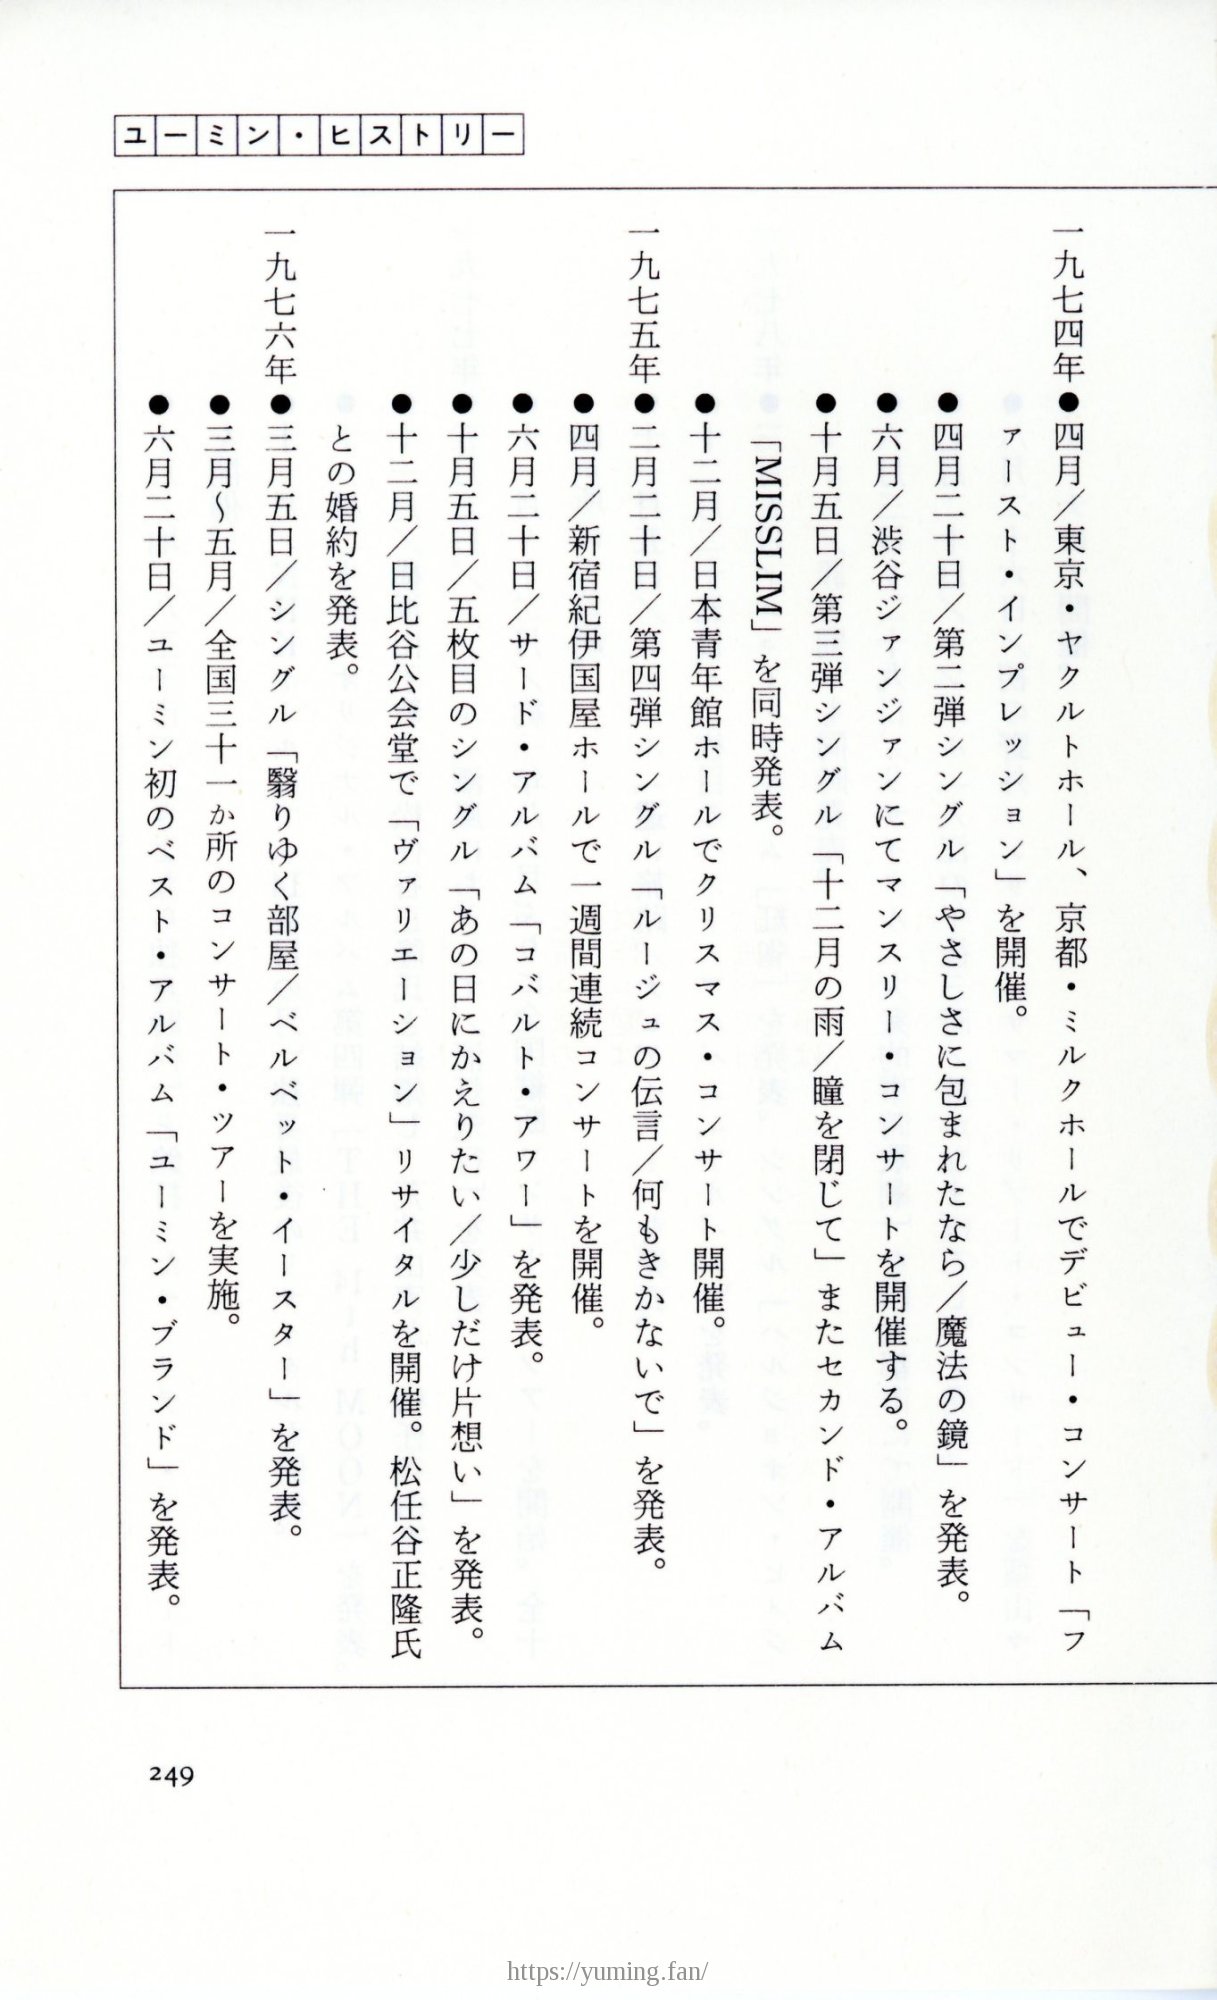 ユーミン・ヒストリー
一九七四年●四月／東京・ヤクルトホール、京都・ミルクホールでデビュー・コンサート「フ
ァースト・インプレッション」を開催。
●四月二十日／第二弾シングル「やさしさに包まれたなら／魔法の鏡」を発表。
●六月／渋谷ジァンジァンにてマンスリー・コンサートを開催する。
●十月五日／第三弾シングル「十二月の雨／瞳を閉じて」またセカンド・アルバム
「MISSLIM」を同時発表。
●十二月／日本青年館ホールでクリスマス・コンサート開催。
一九七五年●二月二十日／第四弾シングル「ルージュの伝言／何もきかないで」を発表。
●四月／新宿紀伊国屋ホールで一週間連続コンサートを開催。
●六月二十日／サード・アルバム「コバルト・アワー」を発表。
●十月五日／五枚目のシングル「あの日にかえりたい／少しだけ片想い」を発表。
●十二月／日比谷公会堂で「ヴァリエーション」リサイタルを開催。松任谷正隆氏
との婚約を発表。
一九七六年●三月五日／シングル「翳りゆく部屋／ベルベット・イースター」を発表。
●三月〜五月／全国三十一か所のコンサート・ツアーを実施。
●六月二十日／ユーミン初のベスト・アルバム「ユーミン・ブランド」を発表。
249
https://yuming.fan/